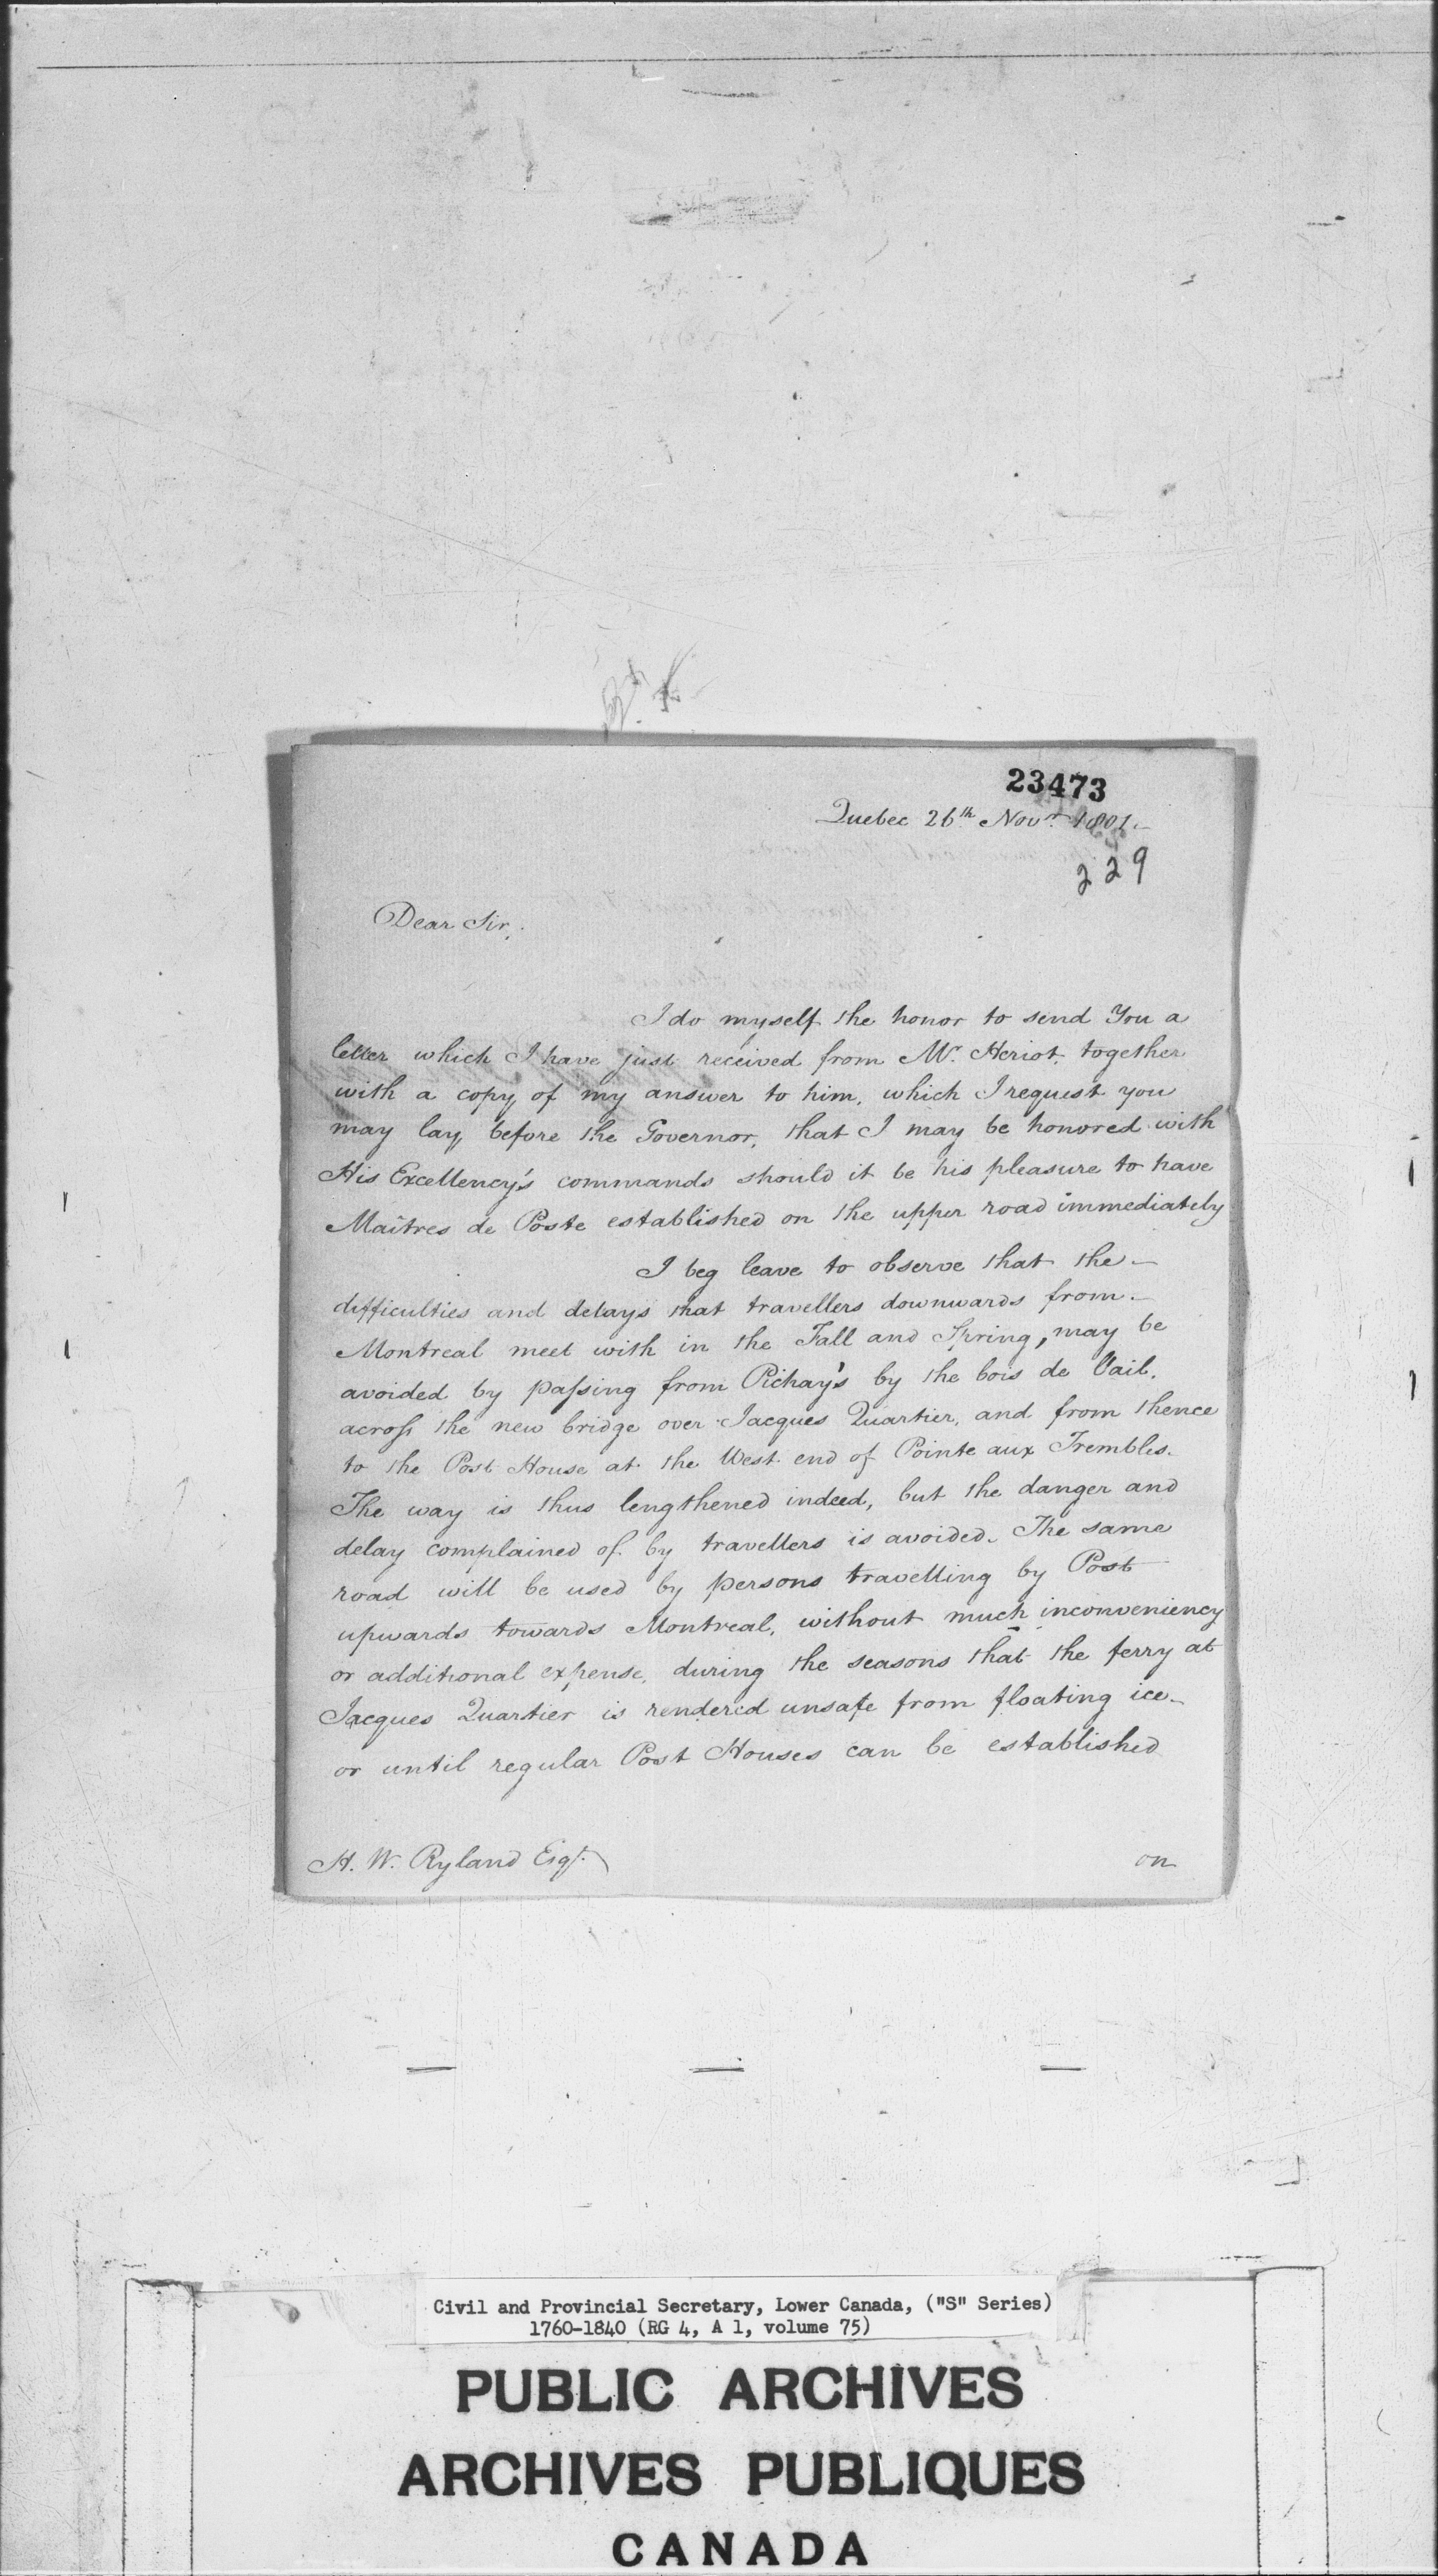 23473
Quebec 26th Novr. 1801.
229
Dear Sir,
I do myself the honor to send You a
letter which I have just received from Mr. Heriot, together
with a copy of my answer to him, which I request you
may lay before the Governor, that I may be honored with
His Excellency's commands should it be his pleasure to have
Maîtres de Poste established on the upper road immediately
I beg leave to observe that the
difficulties and delays that travellers downwards from
Montreal meet with in the Fall and Spring, may be
avoided by passing from Pichay's by the bois de l'ail,
across the new bridge over Jacques Quartier, and from thence
to the Post House at the West end of Pointe aux Trembles.
The way is thus lengthened indeed, but the danger and
delay complained of by travellers is avoided. The same
road will be used by persons travelling by Post
upwards towards Montreal, without much inconveniency
or additional expense, during the seasons that the ferry at
Jacques Quartier is rendered unsafe from floating ice
or until regular Post Houses can be established
H. W. Ryland Esqr.
on
Civil and Provincial Secretary, Lower Canada, ("S" Series)
1760-1840 (RG 4, A 1, volume 75)
PUBLIC ARCHIVES
ARCHIVES PUBLIQUES
CANADA